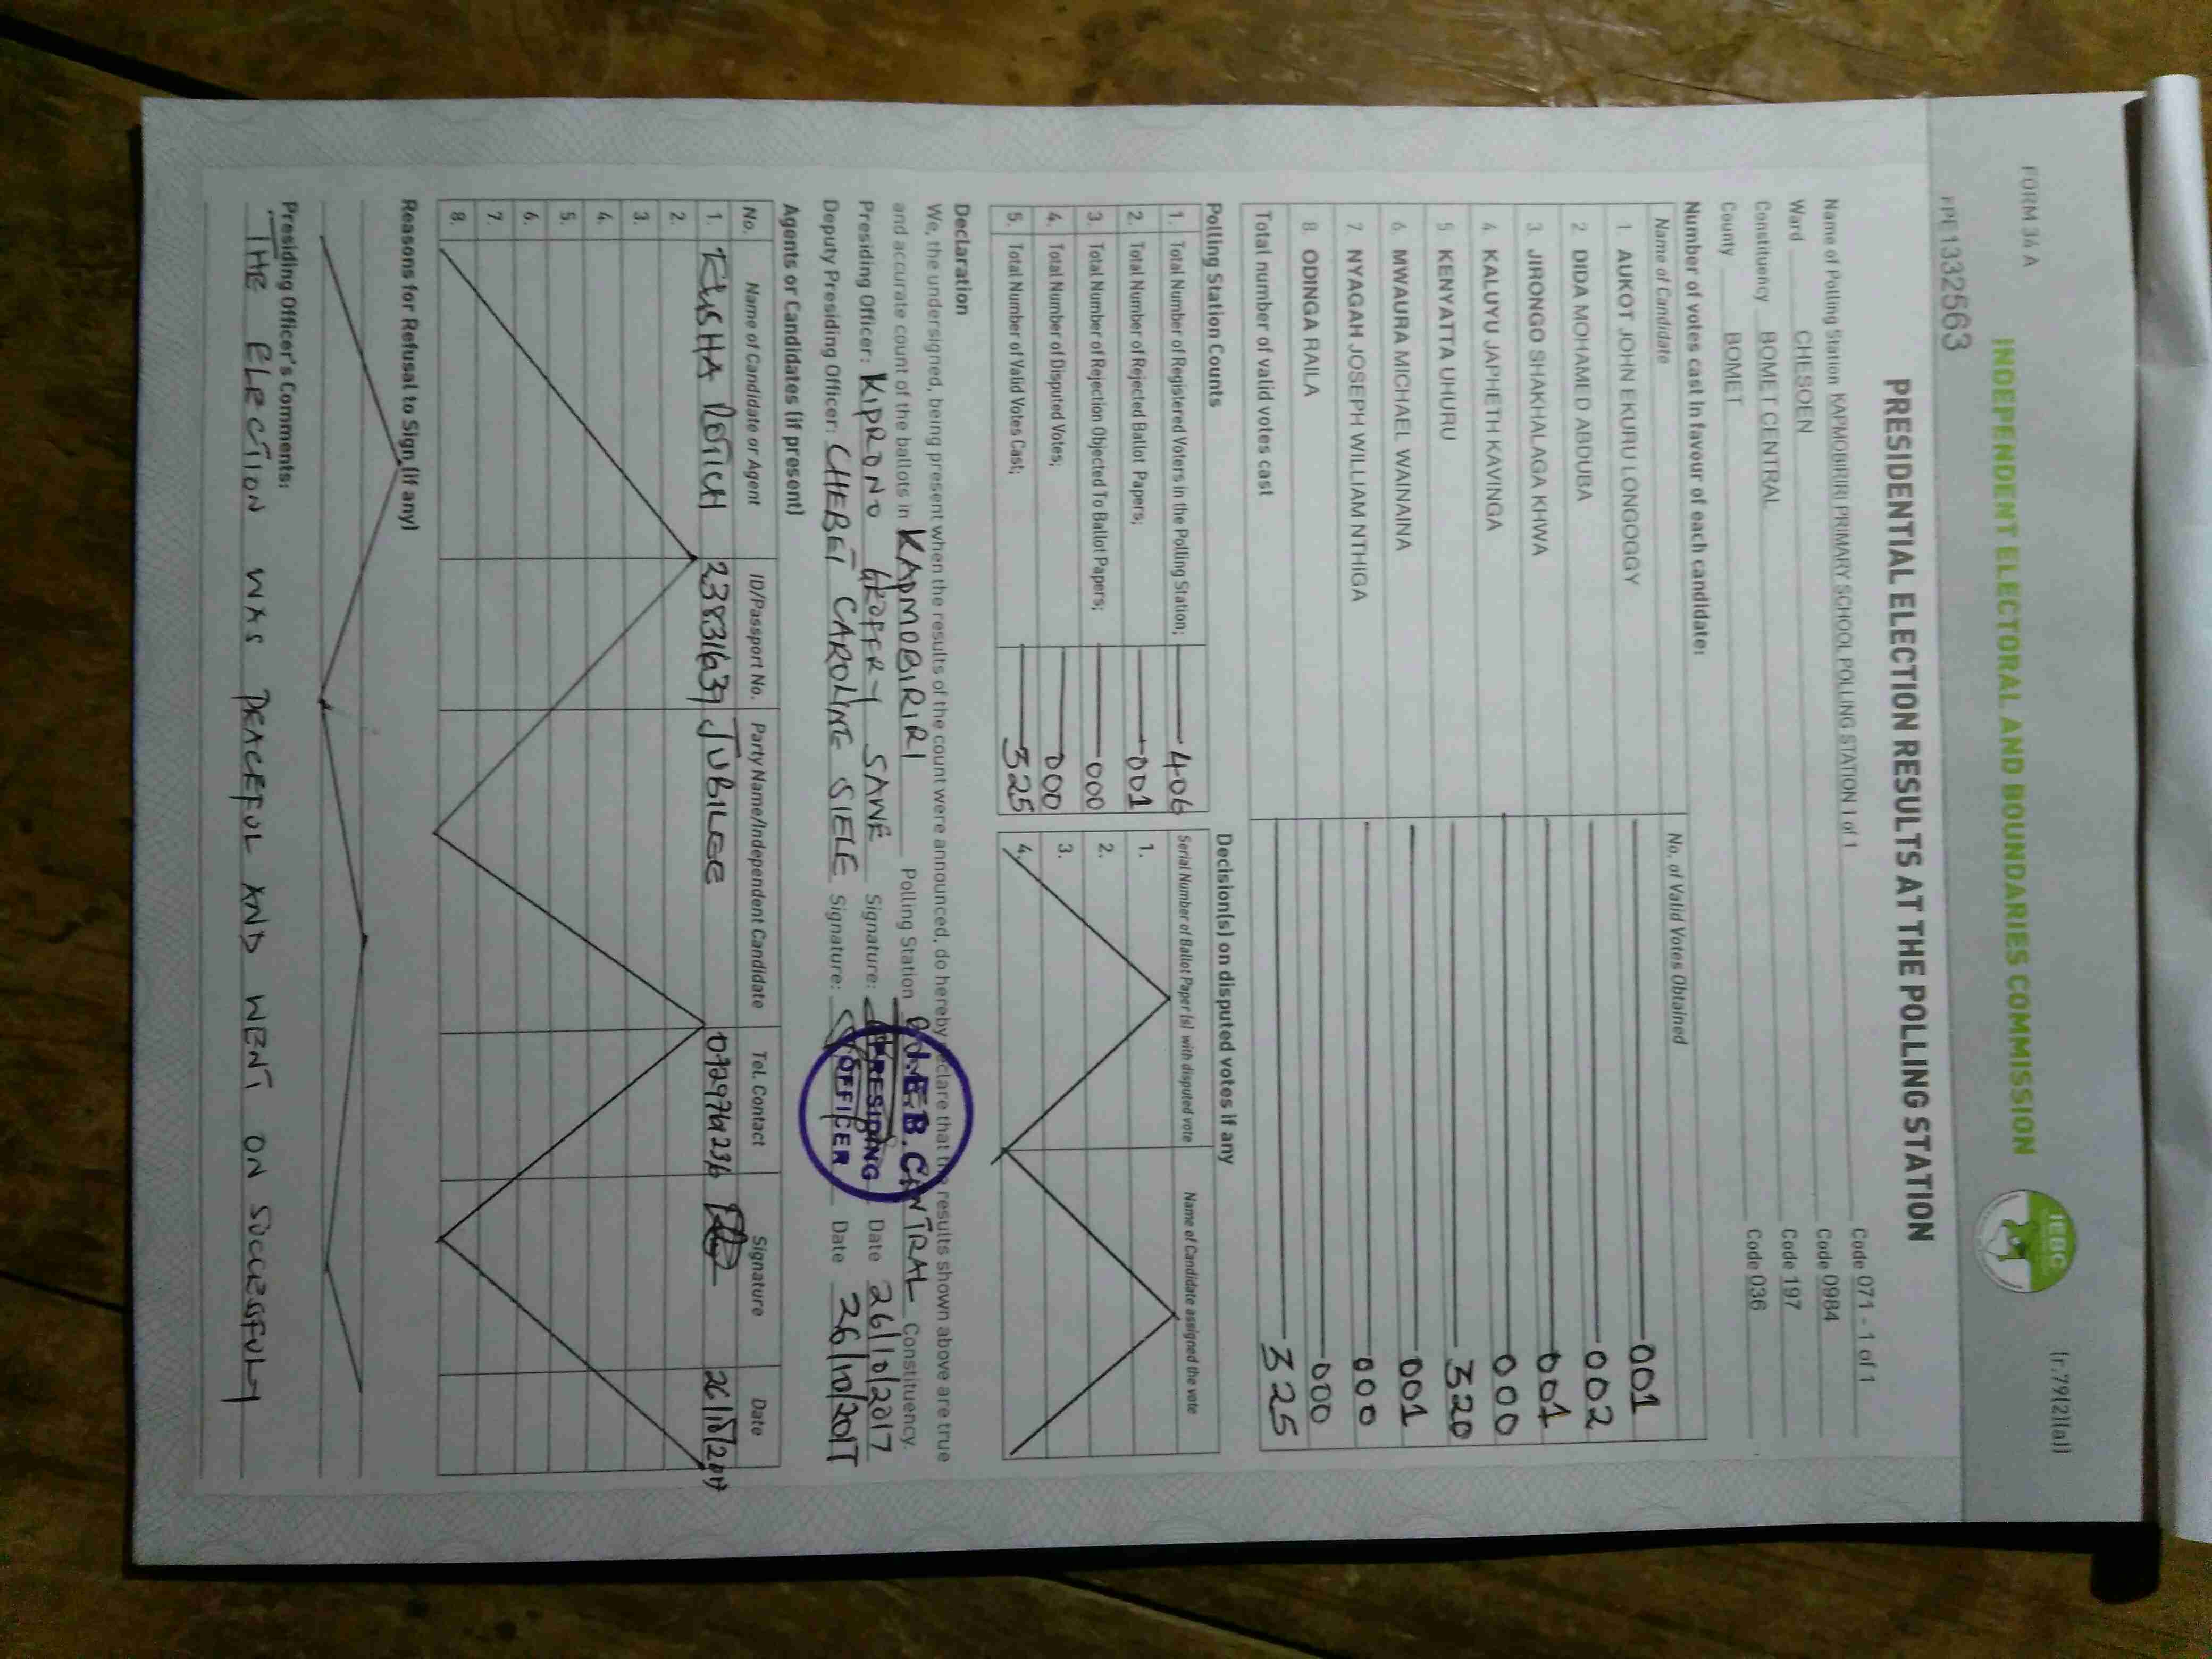 FORM 34 A
[r.79(2)(a)]
INDEPENDENT ELECTORAL AND BOUNDARIES COMMISSION
IEBC
1332563
PRESIDENTIAL ELECTION RESULTS AT THE POLLING STATION
Name of Polling Station KAPMOBIRIRI PRIMARY SCHOOL POLLING STATION 1 of 1 Code 071 - 1 of 1
Ward CHESOEN Code 0984
Constituency BOMET CENTRAL Code 197
County BOMET Code 036
Number of votes cast in favour of each candidate:
Name of Candidate No. of Valid Votes Obtained
1. AUKOT JOHN EKURU LONGOGGY 001
2 DIDA MOHAMED ABDUBA 002
3. JIRONGO SHAKHALAGA KHWA 001
4. KALUYU JAPHETH KAVINGA 000
5 KENYATTA UHURU 320
6. MWAURA MICHAEL WAINAINA 001
7. NYAGAH JOSEPH WILLIAM NTHIGA 000
8 ODINGA RAILA 000
Total number of valid votes cast 325
Polling Station Counts
1. Total Number of Registered Voters in the Polling Station; 406
2. Total Number of Rejected Ballot Papers; 001
3. Total Number of Rejection Objected To Ballot Papers; 000
4. Total Number of Disputed Votes; 000
5. Total Number of Valid Votes Cast; 325
Decision(s) on disputed votes if any
Serial Number of Ballot Paper (s) with disputed vote Name of Candidate assigned the vote
1.
2.
3.
4.
Declaration
We, the undersigned, being present when the results of the count were announced, do hereby declare that the results shown above are true
and accurate count of the ballots in KAPMOBIRIRI Polling Station CENTRAL Constituency.
Presiding Officer: KIPRONO GEOFFRY SANE Signature: Date 26/10/2017
Deputy Presiding Officer: CHEBET CAROLINE SIELE Signature: Date 26/10/2017
PRESIDING
OFFICER
Agents or Candidates (if present)
No. Name of Candidate or Agent ID/Passport No. Party Name/Independent Candidate Tel. Contact Signature Date
1. ROTICH JUBILEE 26/10/2017
2.
3.
4.
5.
6.
7.
8.
Reasons for Refusal to Sign (if any)
Presiding Officer's Comments:
THE ELECTION WAS PEACEFUL AND WENT ON SUCCESFULLY